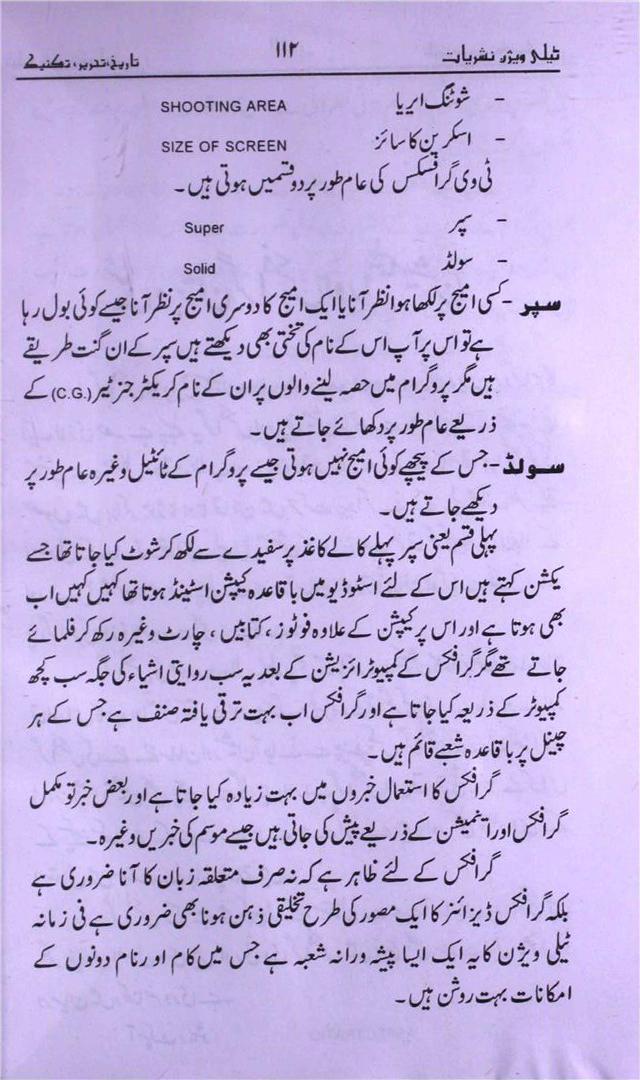 ٹیلی ویژن نشریات ۱۱۲ تاریخ، تحریر، تکنیک
- شوٹنگ ایریا SHOOTING AREA
- اسکرین کا سائز SIZE OF SCREEN
ٹی وی گرافکس کی عام طور پر دو قسمیں ہوتی ہیں۔
- سپر Super
- سولڈ Solid
سپر - کسی امیج پر لکھا ہوا نظر آنا یا ایک امیج کا دوسری امیج پر نظر آنا جیسے کوئی بول رہا
ہے تو اس پر آپ اس کے نام کی تختی بھی دیکھتے ہیں سپر کے ان گنت طریقے
ہیں مگر پروگرام میں حصہ لینے والوں پر ان کے نام کریکٹر جنریٹر (C.G.) کے
ذریعے عام طور پر دکھائے جاتے ہیں۔
سولڈ - جس کے پیچھے کوئی امیج نہیں ہوتی جیسے پروگرام کے ٹائٹیل وغیرہ عام طور پر
دیکھے جاتے ہیں۔
پہلی قسم یعنی سپر پہلے کالے کاغذ پر سفیدے سے لکھ کر شوٹ کیا جاتا تھا جسے
یکشن کہتے ہیں اس کے لئے اسٹوڈیو میں باقاعدہ کیپشن اسٹینڈ ہوتا تھا کہیں کہیں اب
بھی ہوتا ہے اور اس پر کیپشن کے علاوہ فوٹوز، کتابیں، چارٹ وغیرہ رکھ کر فلمائے
جاتے تھے مگر گرافکس کے کمپیوٹرائزیشن کے بعد یہ سب روایتی اشیاء کی جگہ سب کچھ
کمپیوٹر کے ذریعہ کیا جاتا ہے اور گرافکس اب بہت ترقی یافتہ صنف ہے جس کے ہر
چینل پر باقاعدہ شعبے قائم ہیں۔
گرافکس کا استعمال خبروں میں بہت زیادہ کیا جاتا ہے اور بعض خبر تو مکمل
گرافکس اور اینمیشن کے ذریعے پیش کی جاتی ہیں جیسے موسم کی خبریں وغیرہ۔
گرافکس کے لئے ظاہر ہے کہ نہ صرف متعلقہ زبان کا آنا ضروری ہے
بلکہ گرافکس ڈیزائنر کا ایک مصور کی طرح تخلیقی ذہن ہونا بھی ضروری ہے فی زمانہ
ٹیلی ویژن کا یہ ایک ایسا پیشہ ورانہ شعبہ ہے جس میں کام اور نام دونوں کے
امکانات بہت روشن ہیں۔